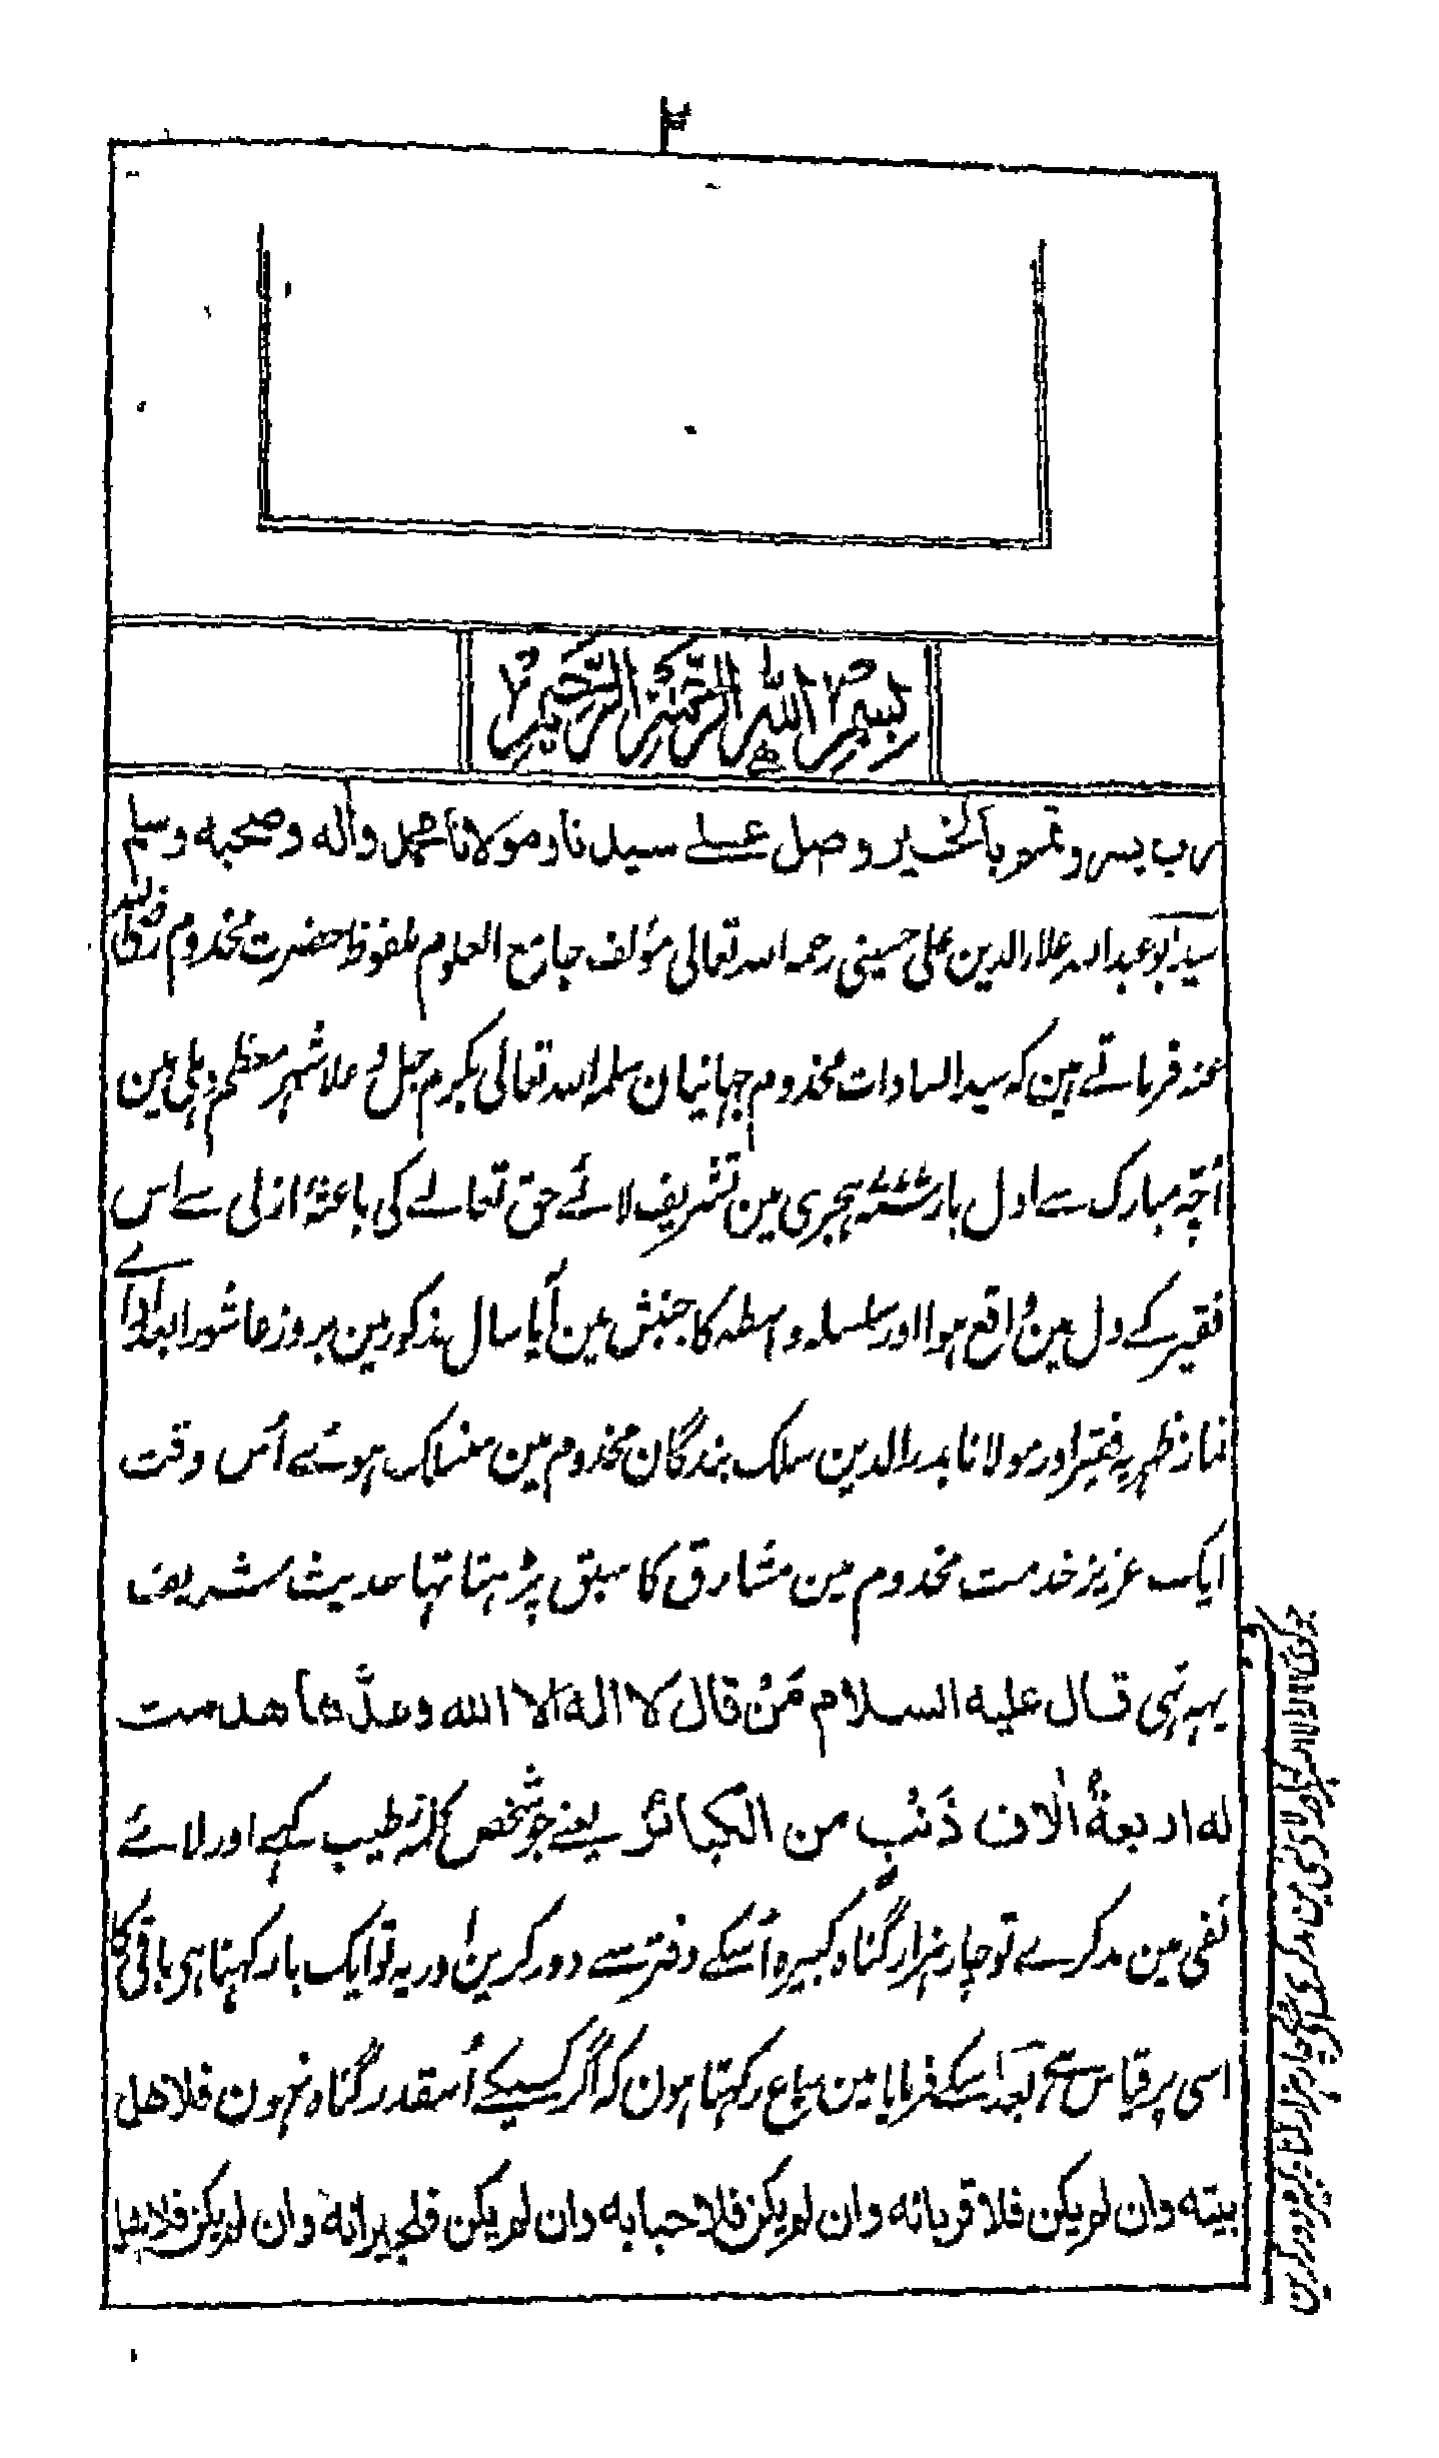 ۲
بسم الله الرحمن الرحيم
رب يسر وتمم بالخير وصل على سيدنا ومولانا محمد واله وصحبه وسلم
سید ابو عبداللہ علاء الدین علی حسینی رحمہ اللہ تعالی مؤلف جامع العلوم ملفوظ حضرت مخدوم رضی اللہ
عنہ فرماتے ہین کہ سید السادات مخدوم جہانیان سلمہ اللہ تعالی بکرم جل و علا شہر معظم دہلی مین
اُچہ مبارک سے اول بار ہجری مین تشریف لائے حق تعالے کی ازلی سے اس
فقیر کے دل مین واقع ہوا اور سلسلہ واسطہ کا جنبش مین آیا سال مذکور مین بروز عاشورا بعد اداے
نماز ظہر یہ فقیر اور مولانا بدر الدین سلک بندگان مخدوم مین منسلک ہوئے اُس وقت
ایک عزیز خدمت مخدوم مین مشارق کا سبق پڑہتا تہا حدیث شریف
یہہ تہی قال عليه السلام مَنْ قال لا اله الا الله ومدَّها هدمت
له اربعةُ اٰلاف ذَنْبٍ من الكبائر یعنے جو شخص کلمۂ طیب کہے اور لائے
نفی مین مد کرے تو چار ہزار گناہ کبیرہ اُسکے دفتر سے دور کرین اور یہ تو ایک بار کہتا ہی باقی کا
اسی پر قیاس ہے بعد اسکے فرمایا مین سماع رکہتا ہون کہ اگر کسیکے اُسقدر گناہ نہون فلاهل
بيته وان لم يكن فلاقربائه وان لم يكن فلاحبابه وان لم يكن فلجيرانه وان لم يكن فلاهل
جو کوئی لا الہ الا اللہ کہے اور لائے نفی مین مد کرے چار ہزار گناہ کبیرہ دور کرین